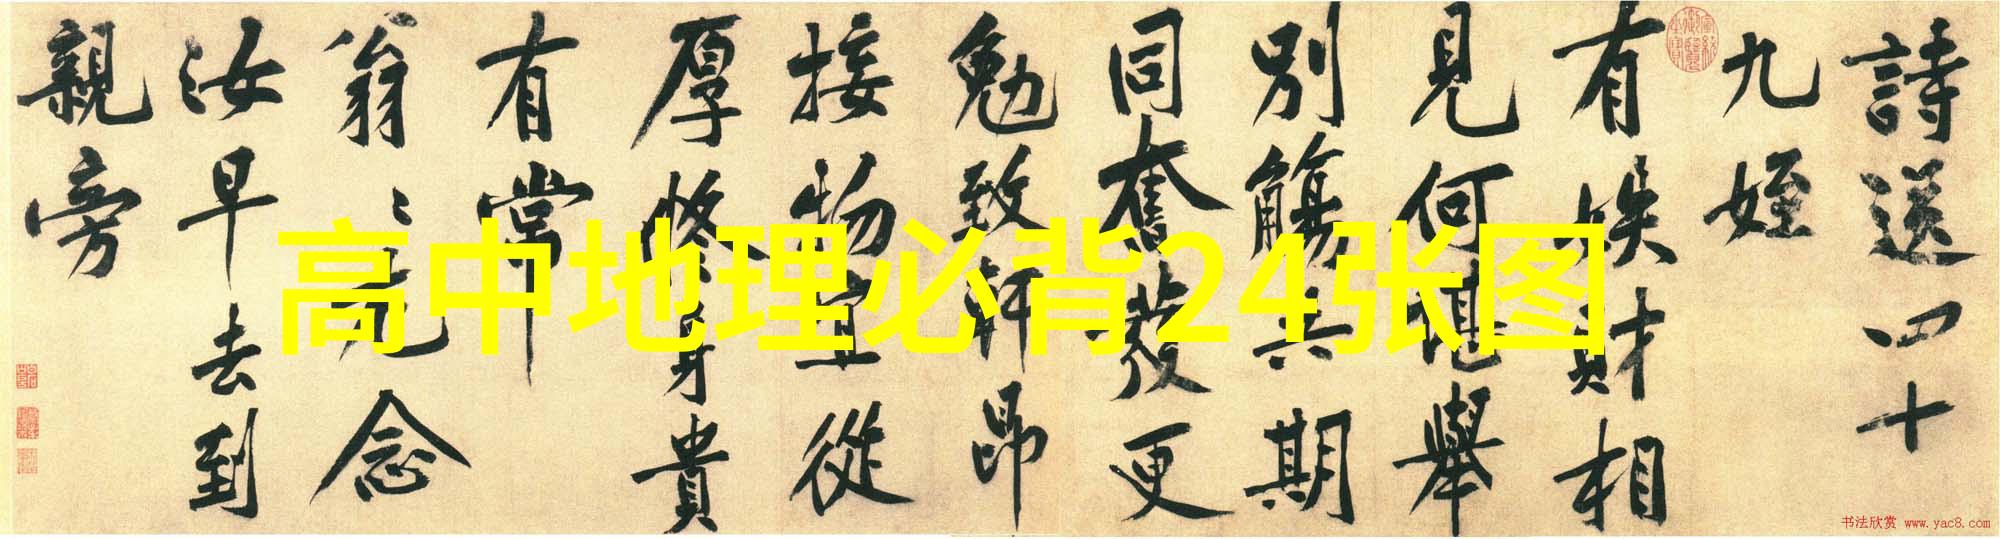 詩送四十
九姪
有財相
見何堪舉
別觴共期
同奮發更
勉致軒昂
接物宜從
厚修身貴
有常
翁〻尤念
汝早去到
親旁
高中地理必背24张图
书法欣赏 www.yac8.com